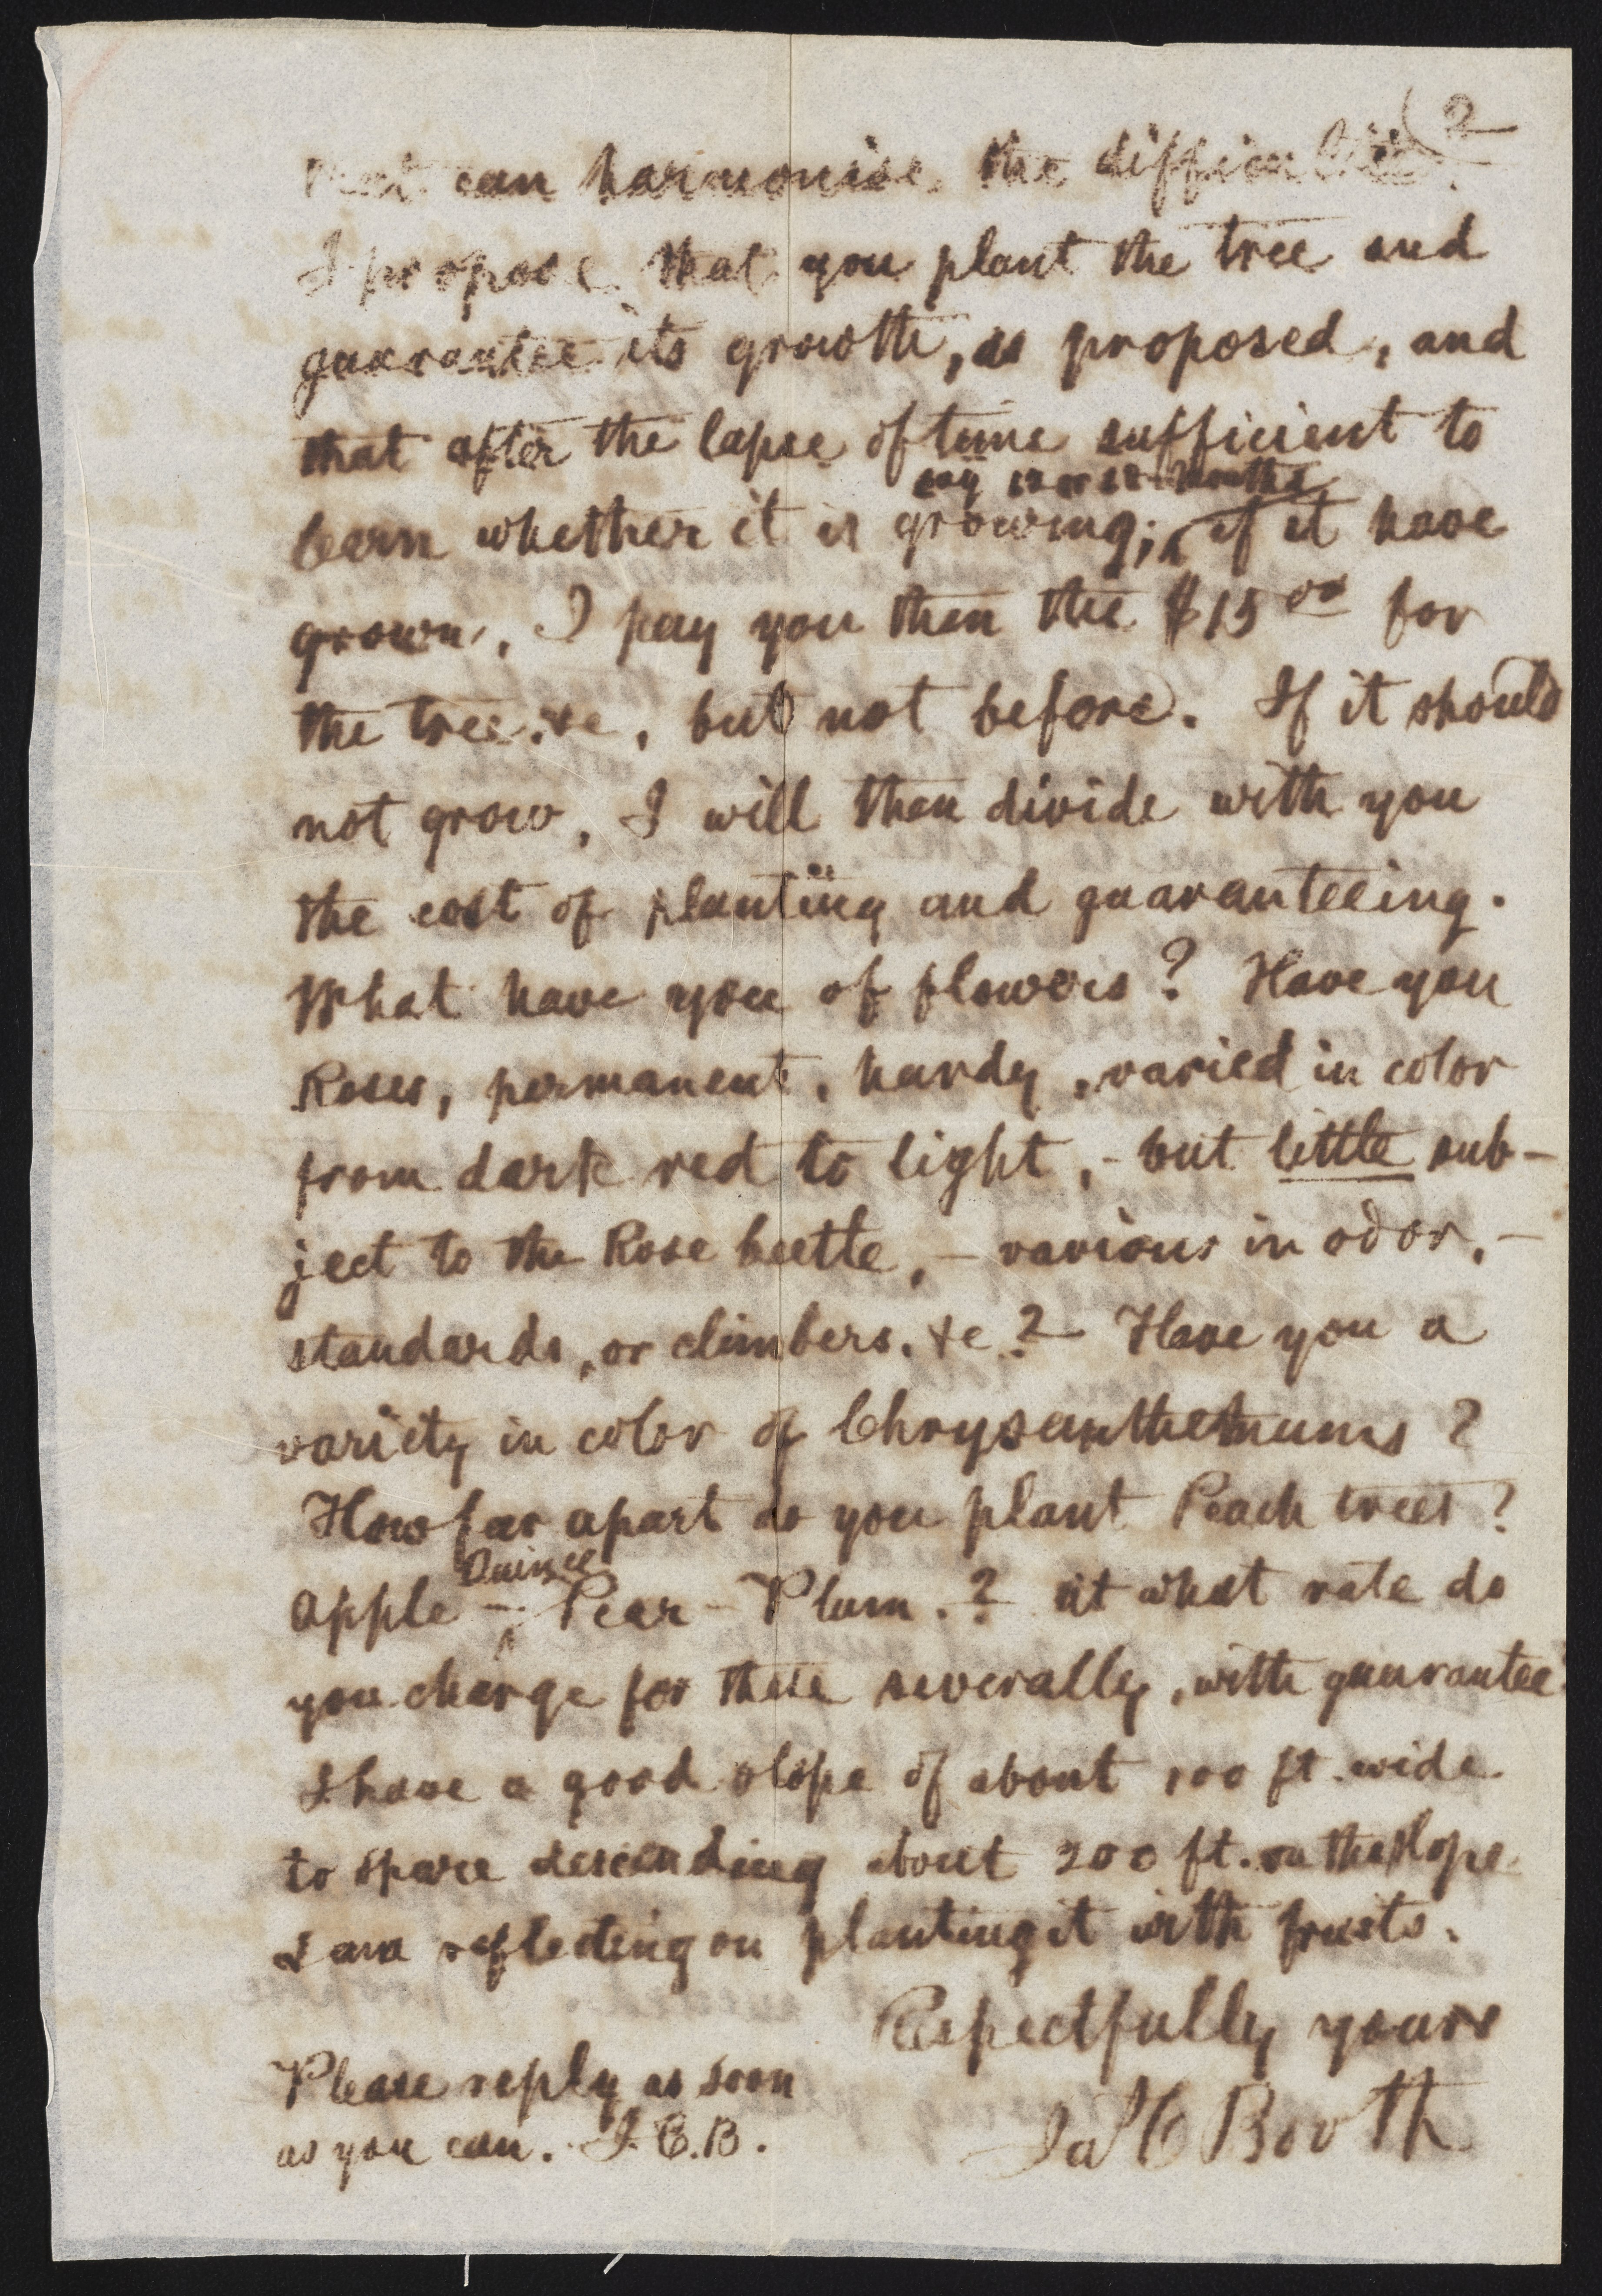 (2
that can harmonise the difficulties.
I propose that you plant the tree and
guarantee its growth, as proposed, and
that after the lapse of time sufficient to
say 12 or 18 months,
learn whether it is growing; if it have
grown, I pay you then the $15 00 for
the tree &c, but not before. If it should
not grow, I will then divide with you
the cost of planting and guaranteeing.
What have you of flowers? Have you
Roses, permanent, hardy, varied in color
from dark red to light, - but little sub-
ject to the Rose beetle, - various in odor, -
standards, or climbers, &c? Have you a
variety in color of Chrysanthemums?
How far apart do you plant Peach trees?
Quince
Apple - Pear - Plum.? At what rate do
you charge for these severally, with guarantee
I have a good slope of about 100 ft. wide
to spare descending about 200 ft. on the slope
I am reflecting on planting it with fruits.
Respectfully yours
Please reply as soon
as you can. J.C.B.
Ja C Booth